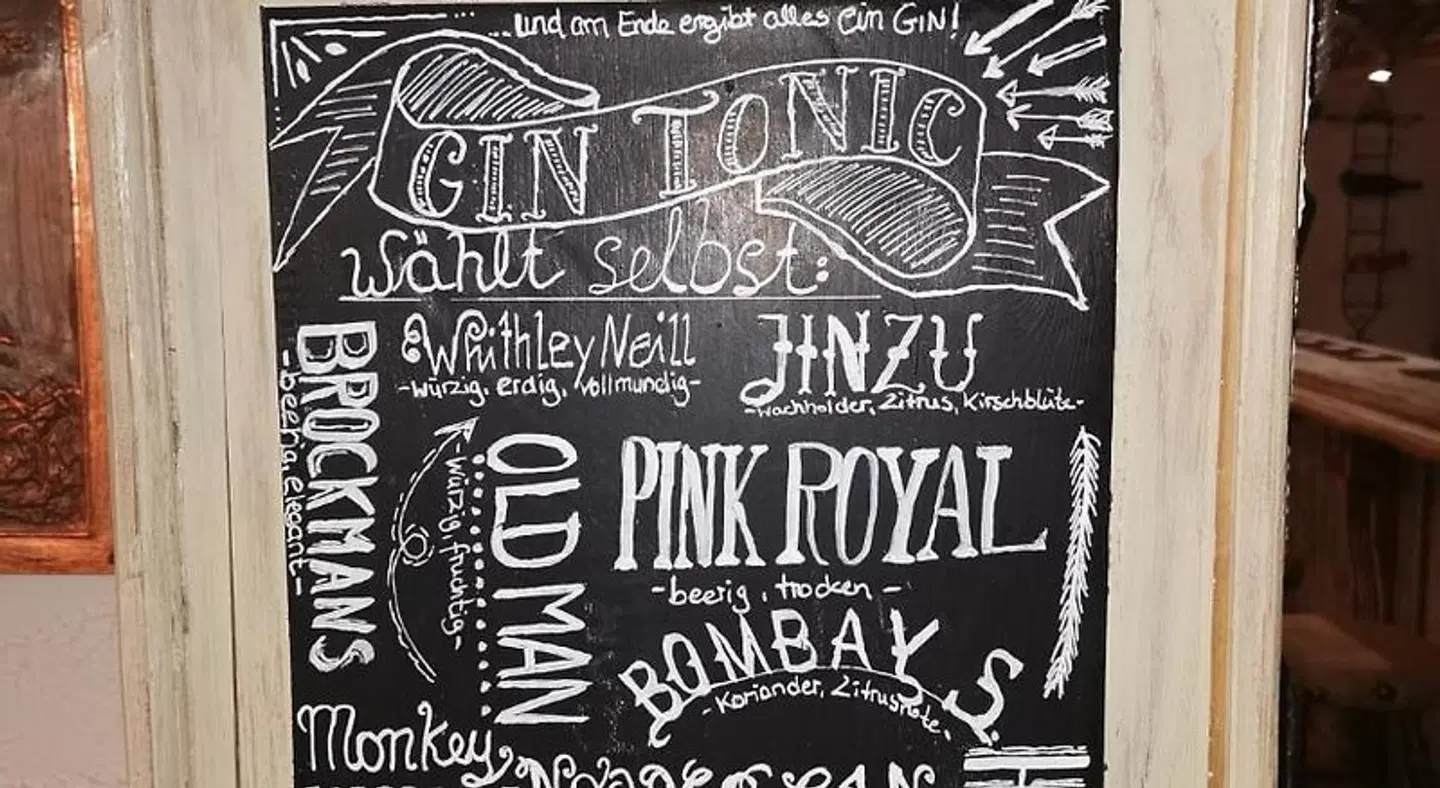 ...und am Ende ergibt alles ein GIN!
GIN TONIC
wählt selbst:
Whithley Neill
-würzig, erdig, vollmundig-
JINZU
-Wachholder, Zitrus, Kirschblüte-
BROCKMANS
-beerig, elegant-
OLD MAN
-würzig, fruchtig-
PINK ROYAL
-beerig, trocken-
BOMBAY S.
-Koriander, Zitrusnote-
Monkey